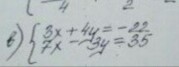 в) { 3x + 4y = -22
7x - 3y = 35